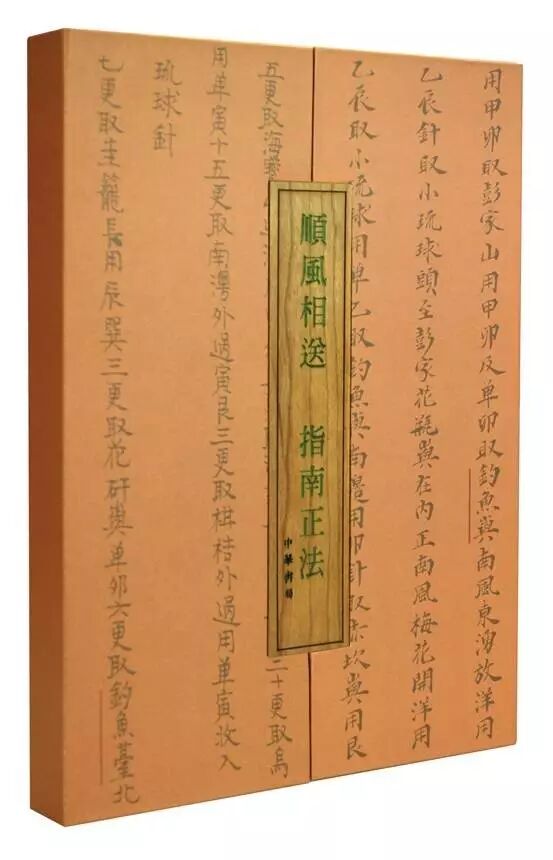 用甲卯取彭家山用甲卯及单卯取釣魚嶼南風東湧放洋用
乙辰針取小琉球頭至彭家花瓶嶼在内正南風梅花開洋用
乙辰取小琉球用单乙取釣魚嶼南邉用卯針取赤坎嶼用艮
順風相送 指南正法
中華書局
五更取海 二十更取烏
用单寅十五更取南 外過寅艮三更取 桔外過用单寅收入
琉球針
七更取圭籠長用辰巽三更取花矸嶼单卯六更取釣魚臺北